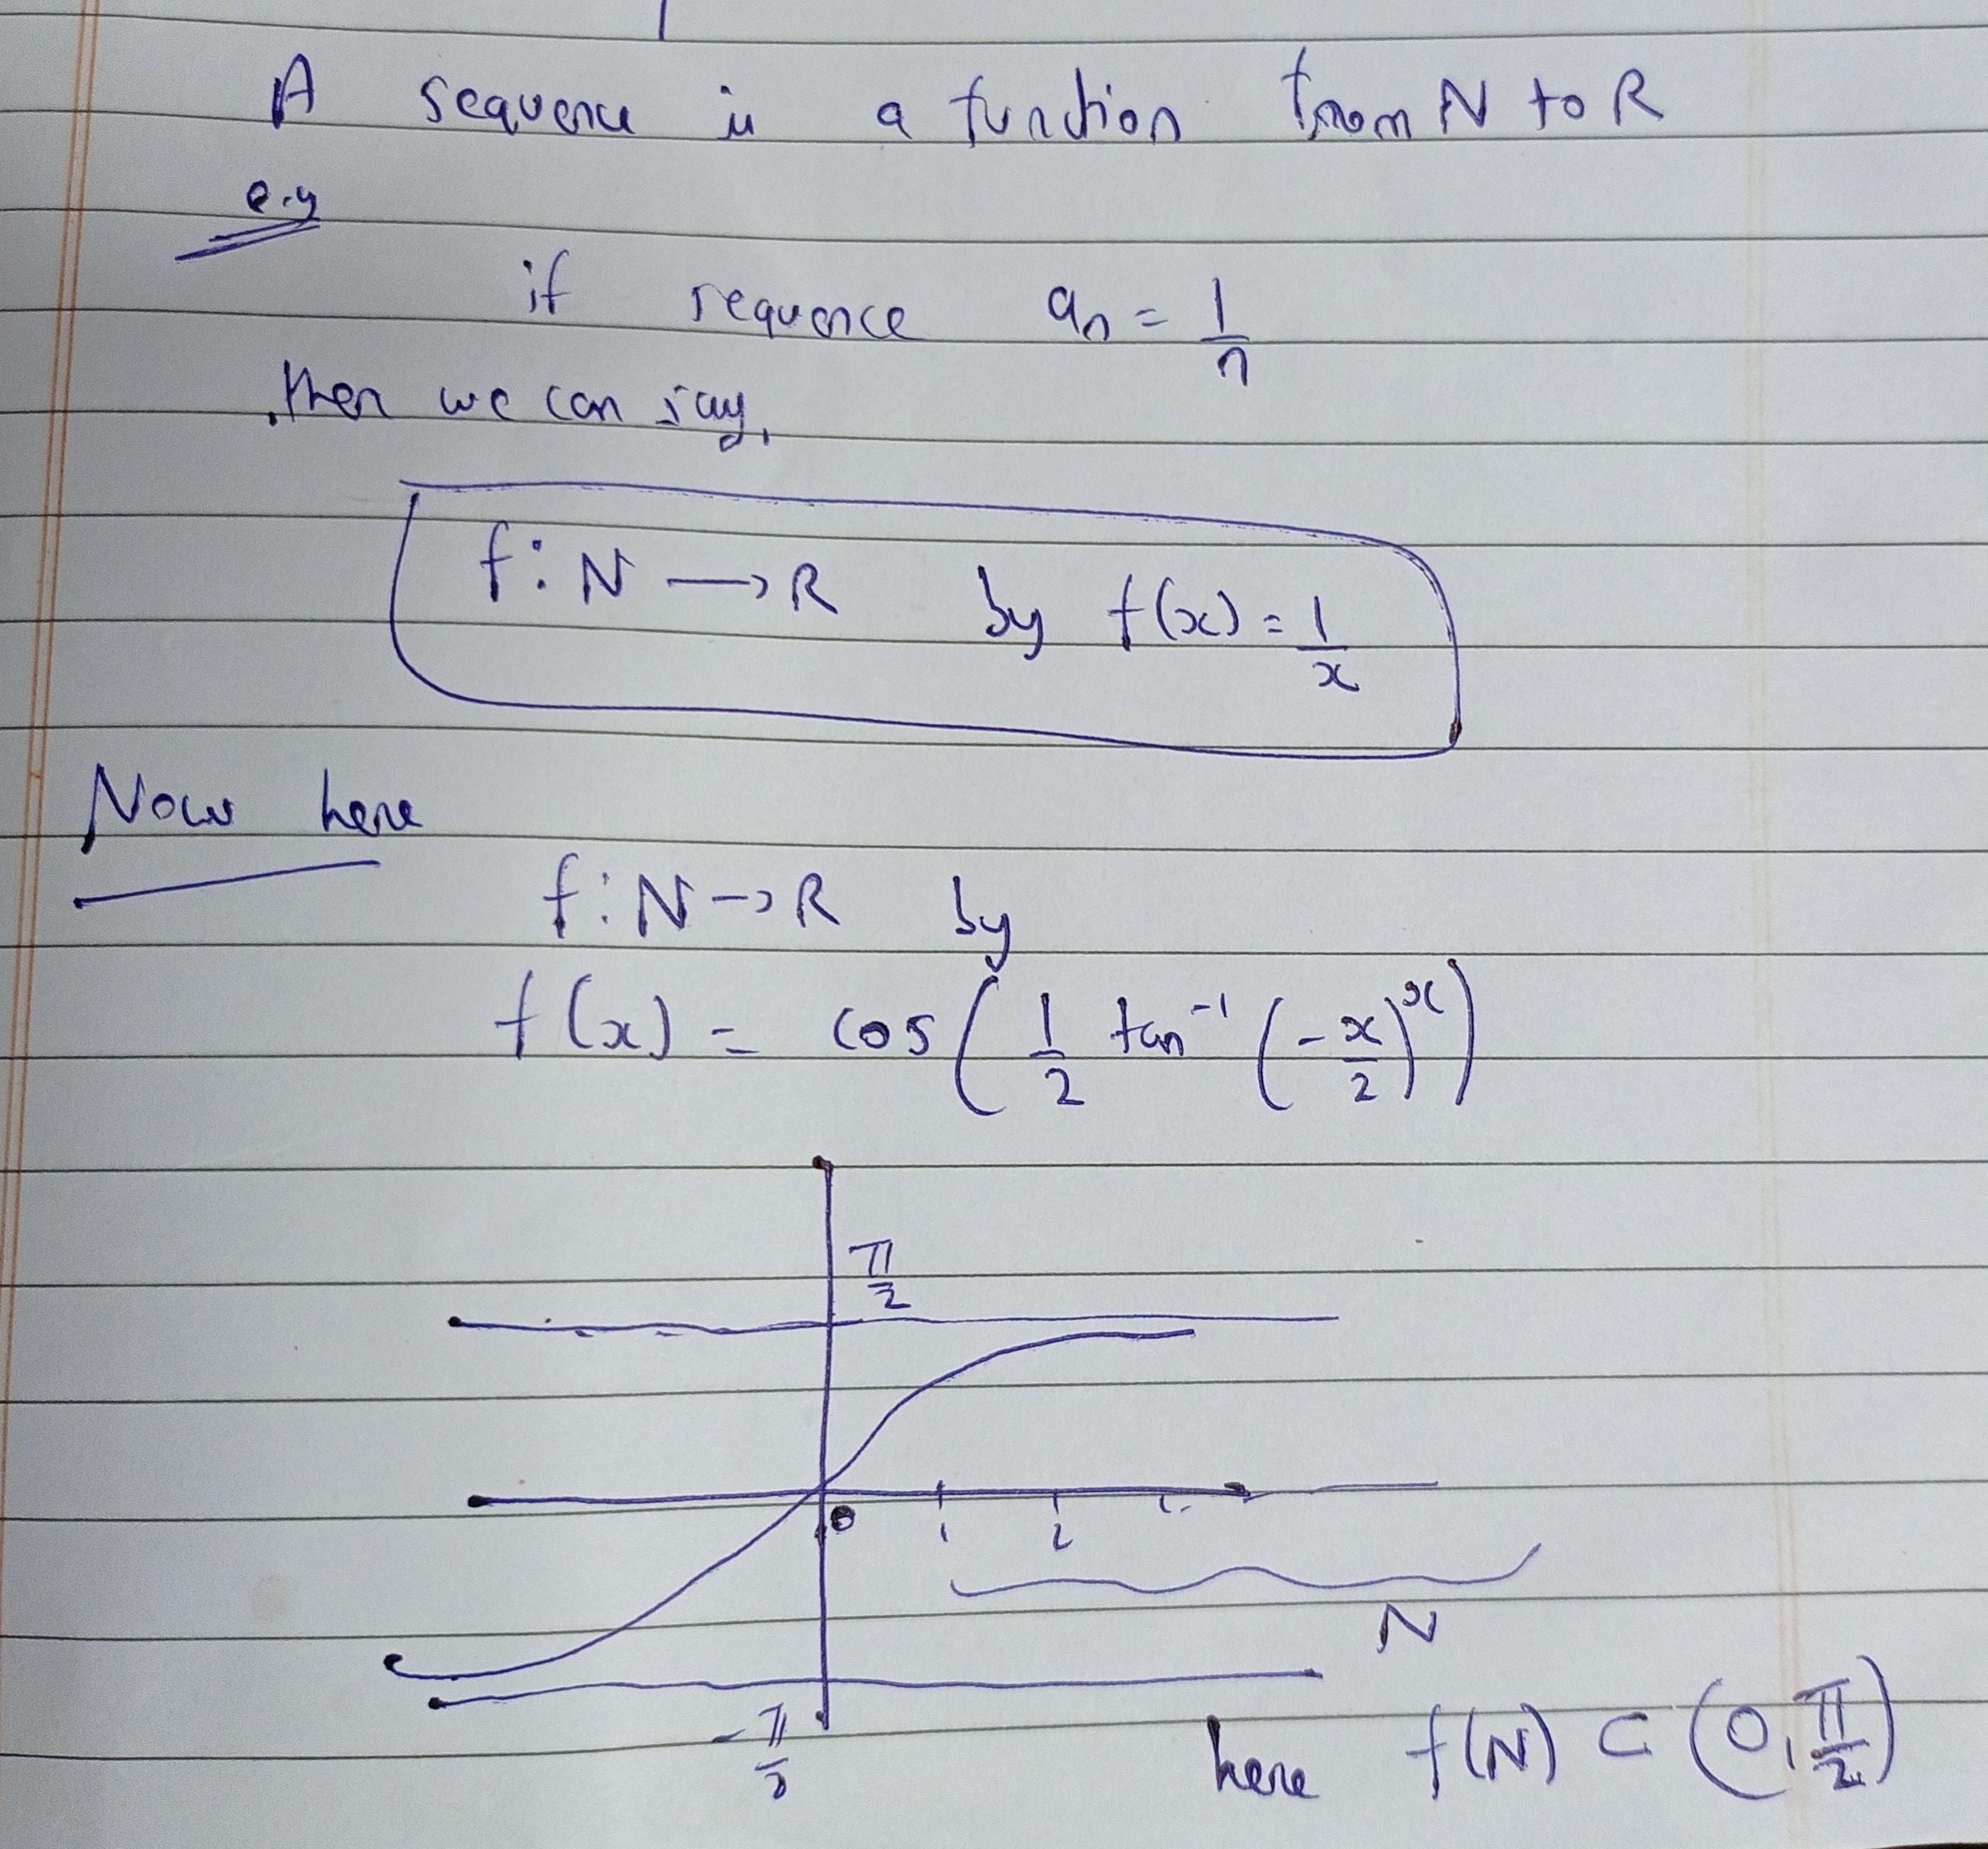 A sequence is a function from N to R
e.g
if sequence aₙ = 1/n
then we can say,
f : N → R by f(x) = 1/x
Now here
f : N → R by
f(x) = cos(1/2 tan⁻¹(-x/2)ˣ)
π/2
0 1 2
N
-π/2
here f(N) ⊂ (0, π/2)